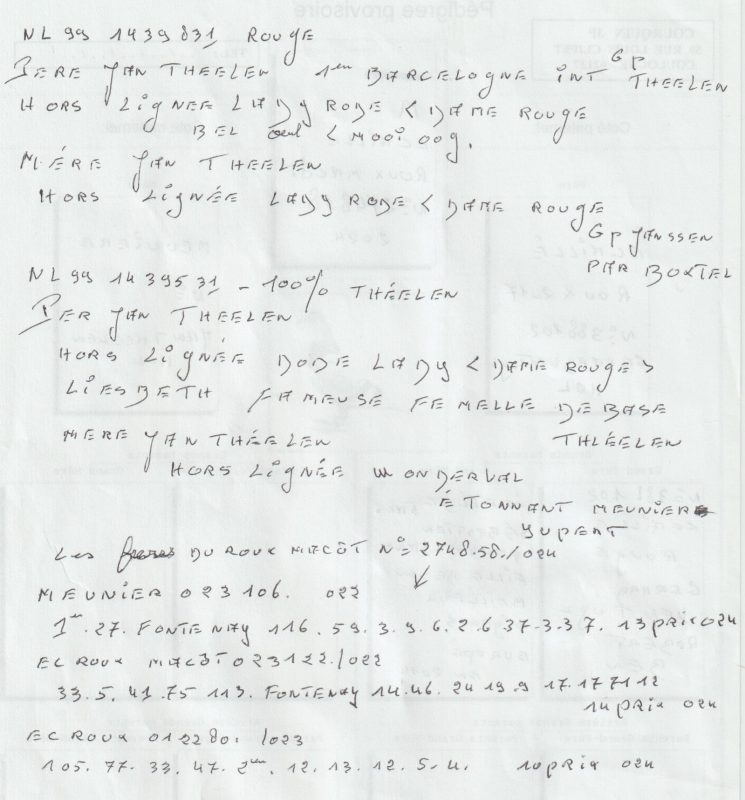 NL 99 1439831 ROUGE
PERE JAN THEELEN 1er BARCELOGNE INT GP THEELEN
HORS LIGNEE LADY RODE < DAME ROUGE
BEL oeul < MOOI OOG.
MÈRE JAN THEELEN
HORS LIGNÉE LADY RODE < DAME ROUGE
GP JANSSEN
PAR BOXTEL
NL 99 1439531 - 100% THÉELEN
PER JAN THEELEN
HORS LIGNÉE DODE LADY < DAME ROUGE >
LIESBETH FAMEUSE FEMELLE DE BASE
MERE JAN THÉELEN THLÉELEN
HORS LIGNÉE WONDERVAL
ÉTONNANT MEUNIER
JUPENT
Les freres DU ROUX MACÔT N° = 2748.58./024
MEUNIER 023106. 022
1er. 27. FONTENAY 116. 59. 3. 9. 6. 2. 6 37-3-3 7. 13 PRIX 024
EC ROUX MACÔT 023122./022
33. 5. 41. 75 113. FONTENAY 14.46. 24 19.9 17.17 71 12
14 PRIX 024
EC ROUX 012280. /023
105. 77. 33. 47. 2em. 12. 13. 12. 5. 4. 10 PRIX 024